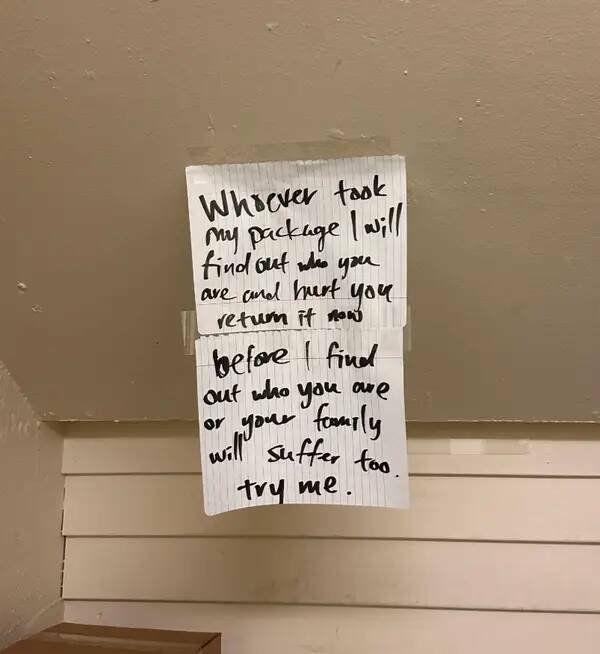 Whoever took
my package I will
find out who you
are and hurt you
return it now
before I find
out who you are
or your family
will suffer too.
try me.